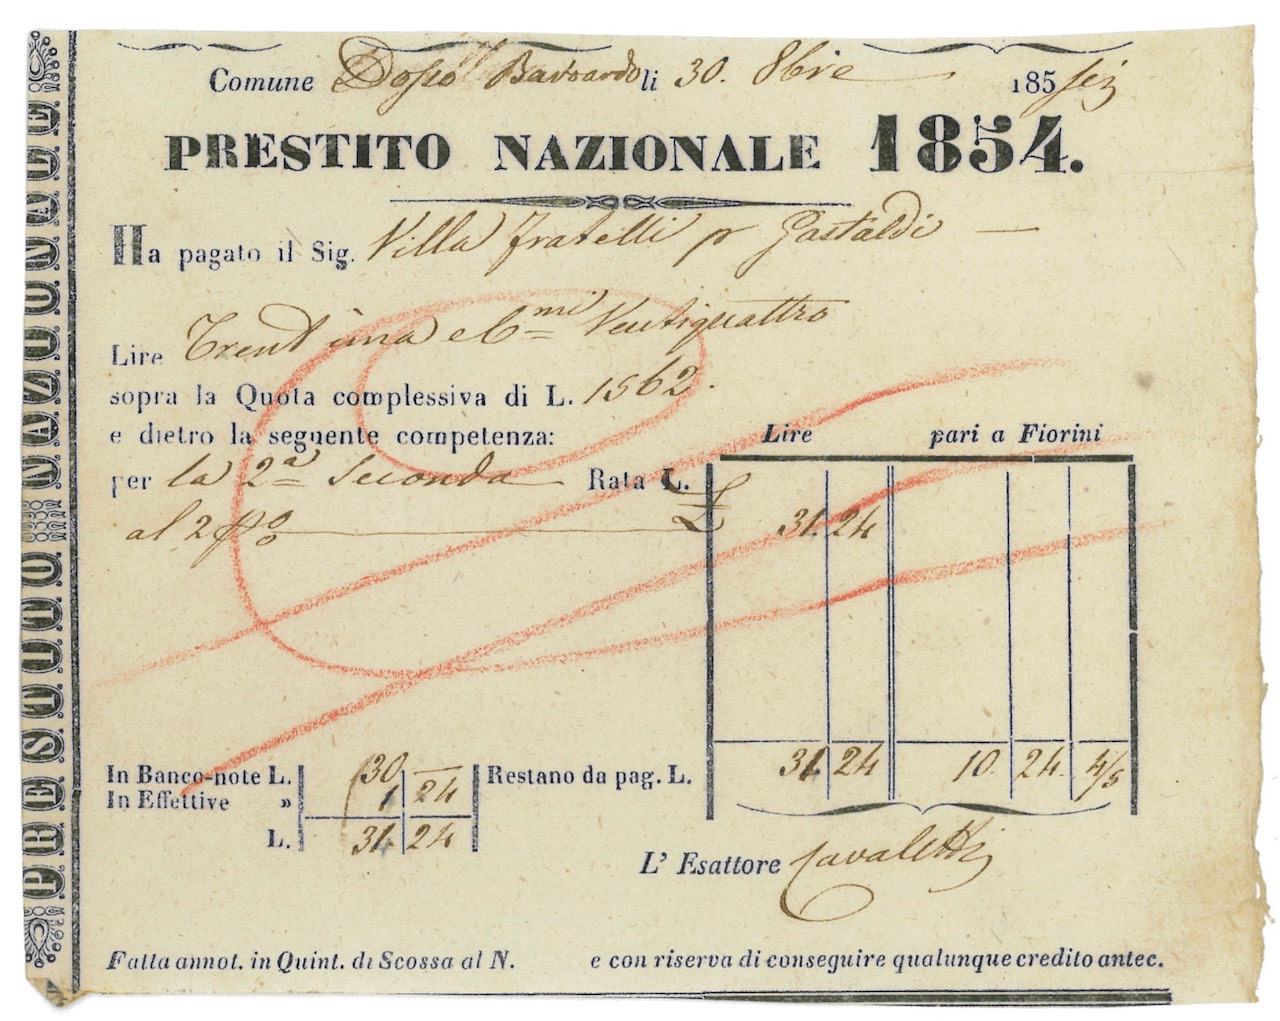 PRESTITO NAZIONALE
Comune Dosso Bavoardo li 30. 8bre 185 sei
PRESTITO NAZIONALE 1854.
Ha pagato il Sig. Villa fratelli pr Gastaldi —
Lire Trentuna e Cmi Ventiquattro
sopra la Quota complessiva di L. 1562.
e dietro la seguente competenza:
Lire pari a Fiorini
per la 2a Seconda Rata L.
al 2 31. 24
In Banco-note L. 30 — Restano da pag. L. 31. 24 10. 24. 4/5
In Effettive » 1 24
L. 31. 24
L' Esattore Cavaletti
Fatta annot. in Quint. di Scossa al N. e con riserva di conseguire qualunque credito antec.